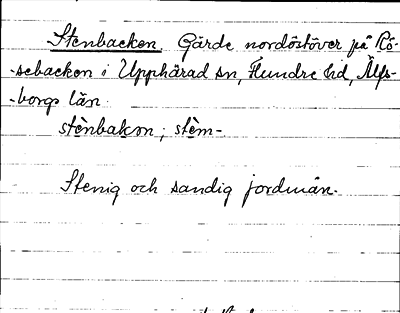 Stenbacken Gärde nordöstöver på Rö-
-sebacken i Upphärad sn, Flundre hd, Älfs-
-borgs län.
stènbakən; stèm-
Stenig och sandig jordmån.